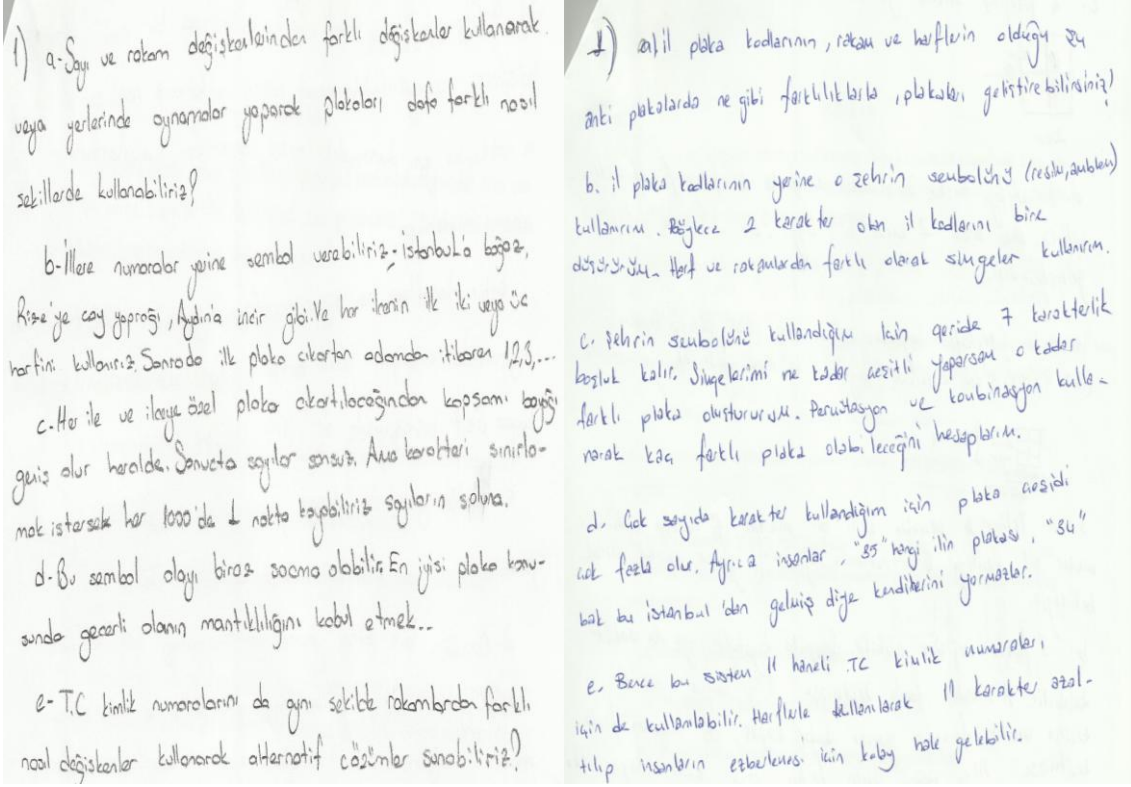 1) a-Sayı ve rakam değişkenlerinden farklı değişkenler kullanarak
veya yerlerinde oynamalar yaparak plakaları daha farklı nasıl
şekillerde kullanabiliriz?
b-İllere numaralar yerine sembol verebiliriz; İstanbul'a boğaz,
Rize'ye çay yaprağı, Aydın'a incir gibi. Ve her ilçenin ilk iki veya üç
harfini kullanırız. Sonrada ilk plaka çıkartan adamdan itibaren 1,2,3,...
c-Her ile ve ilçeye özel plaka çıkartılacağından kapsamı bayağı
geniş olur heralde. Sonuçta sayılar sonsuz. Ama karakteri sınırla-
mak istersek her 1000'de 1 nokta koyabiliriz sayıların soluna.
d-Bu sembol olayı biraz saçma olabilir. En iyisi plaka konu-
sunda geçerli olanın mantıklılığını kabul etmek...
e-T.C kimlik numaralarını da aynı şekilde rakamlardan farklı
nasıl değişkenler kullanarak alternatif çözümler sunabiliriz?
1) a) il plaka kodlarının, rakam ve harflerin olduğu şu
anki plakalarda ne gibi farklılıklarla, plakaları geliştirebilirsiniz?
b. il plaka kodlarının yerine o şehrin sembolünü (resim, amblem)
kullanırım. Böylece 2 karakter olan il kodlarını bire
düşürürüm. Harf ve rakamlardan farklı olarak simgeler kullanırım.
c. Şehrin sembolünü kullandığım için geride 7 karakterlik
boşluk kalır. Simgelerimi ne kadar çeşitli yaparsam o kadar
farklı plaka oluştururum. Permütasyon ve kombinasyon kulla-
narak kaç farklı plaka olabileceğini hesaplarım.
d. Çok sayıda karakter kullandığım için plaka çeşidi
çok fazla olur. Ayrıca insanlar, "35" hangi ilin plakası, "34"
bak bu istanbul'dan gelmiş diye kendilerini yormazlar.
e. Bence bu sistem 11 haneli TC kimlik numaraları
için de kullanılabilir. Harflerle kullanılarak 11 karakter azal-
tılıp insanların ezberlemesi için kolay hale gelebilir.